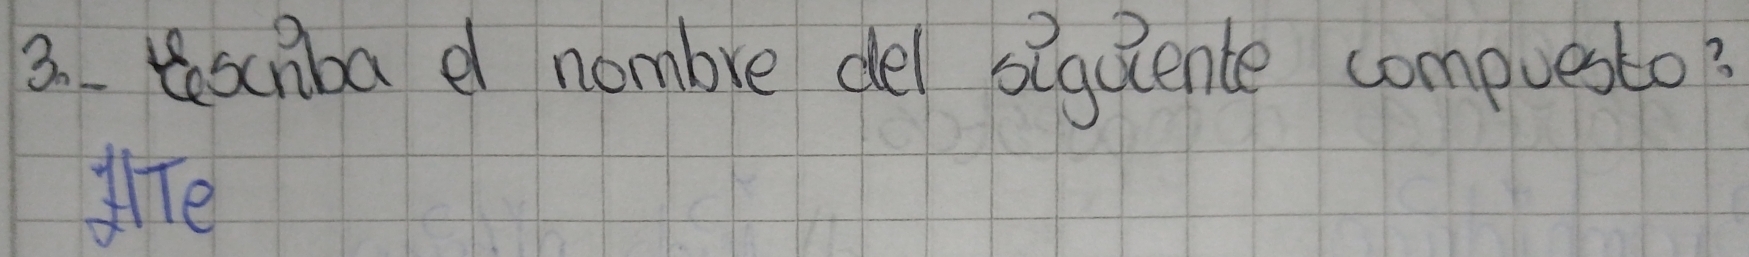 3.- Escriba el nombre del siguiente compuesto?
HTe